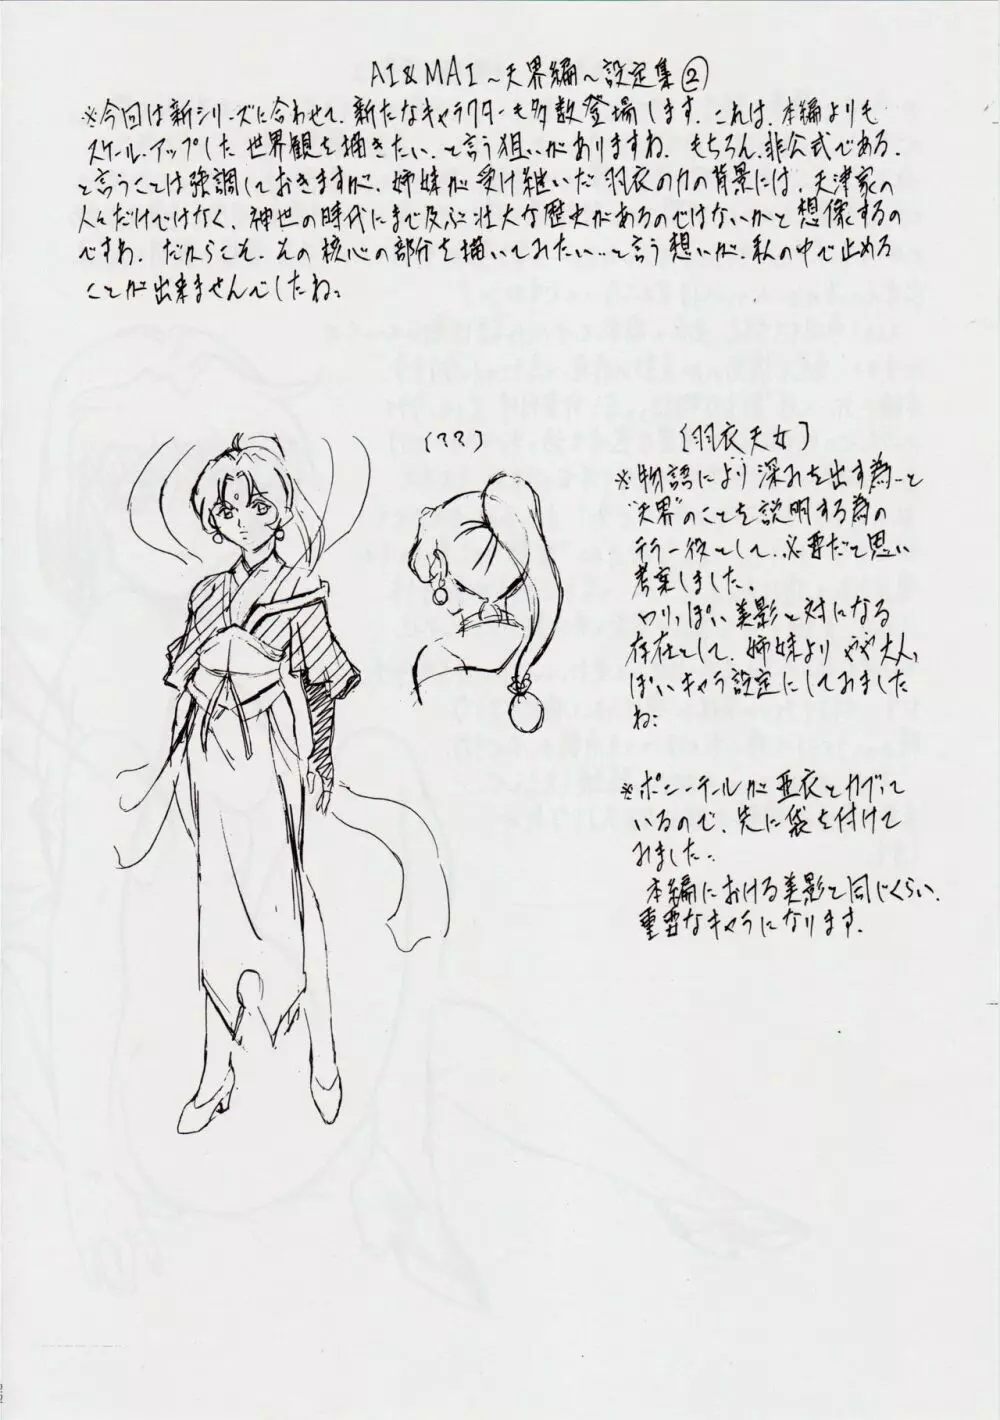 AI&MAI～天界編～設定集②
※今回は新シリーズに合わせて、新たなキャラクターも多数登場します。これは、本編よりも
スケール・アップした世界観を描きたい、と言う狙いがありますね。もちろん、非公式である、
と言うことは強調しておきますが、姉妹が受け継いだ羽衣の力の背景には、天津家の
人々だけではなく、神世の時代にまで及ぶ壮大な歴史があるのではないかと想像するの
ですね。だからこそ、その核心の部分を描いてみたい…と言う想いが、私の中で止める
ことが出来ませんでしたね。
(??)
[羽衣天女]
※物語により深みを出す為…と
"天界"のことを説明する為の
テラー役として、必要だと思い
考案しました。
ロリっぽい美影と対になる
存在として、姉妹よりやや大人っ
ぽいキャラ設定にしてみました
ね。
※ポニーテールが亜衣とカブって
いるので、先に袋を付けて
みました。
本編における美影と同じくらい、
重要なキャラになります。
22